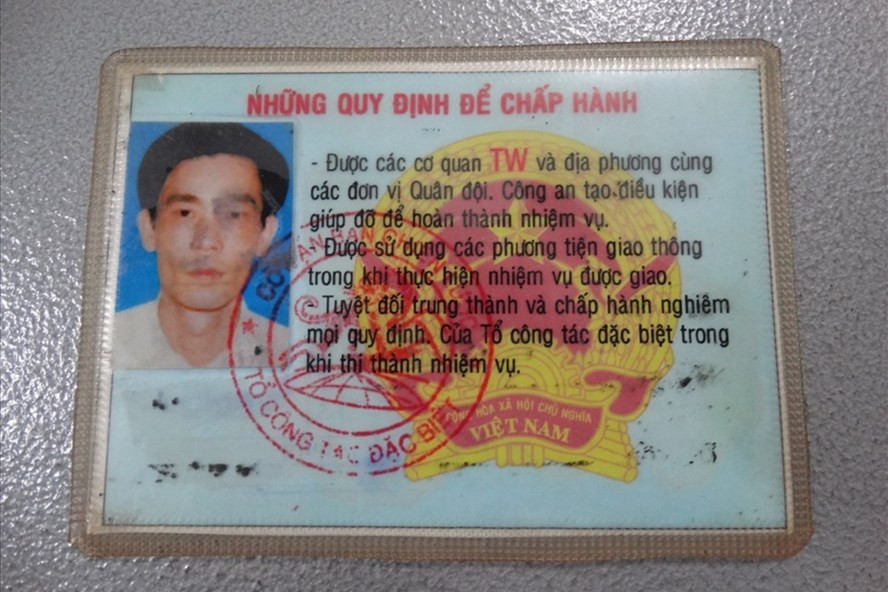 NHỮNG QUY ĐỊNH ĐỂ CHẤP HÀNH
- Được các cơ quan TW và địa phương cùng
các đơn vị Quân đội. Công an tạo điều kiện
giúp đỡ để hoàn thành nhiệm vụ.
- Được sử dụng các phương tiện giao thông
trong khi thực hiện nhiệm vụ được giao.
- Tuyệt đối trung thành và chấp hành nghiêm
mọi quy định. Của Tổ công tác đặc biệt trong
khi thi thành nhiệm vụ.
TỔ CÔNG TÁC ĐẶC BIỆT
CỘNG HÒA XÃ HỘI CHỦ NGHĨA
VIỆT NAM